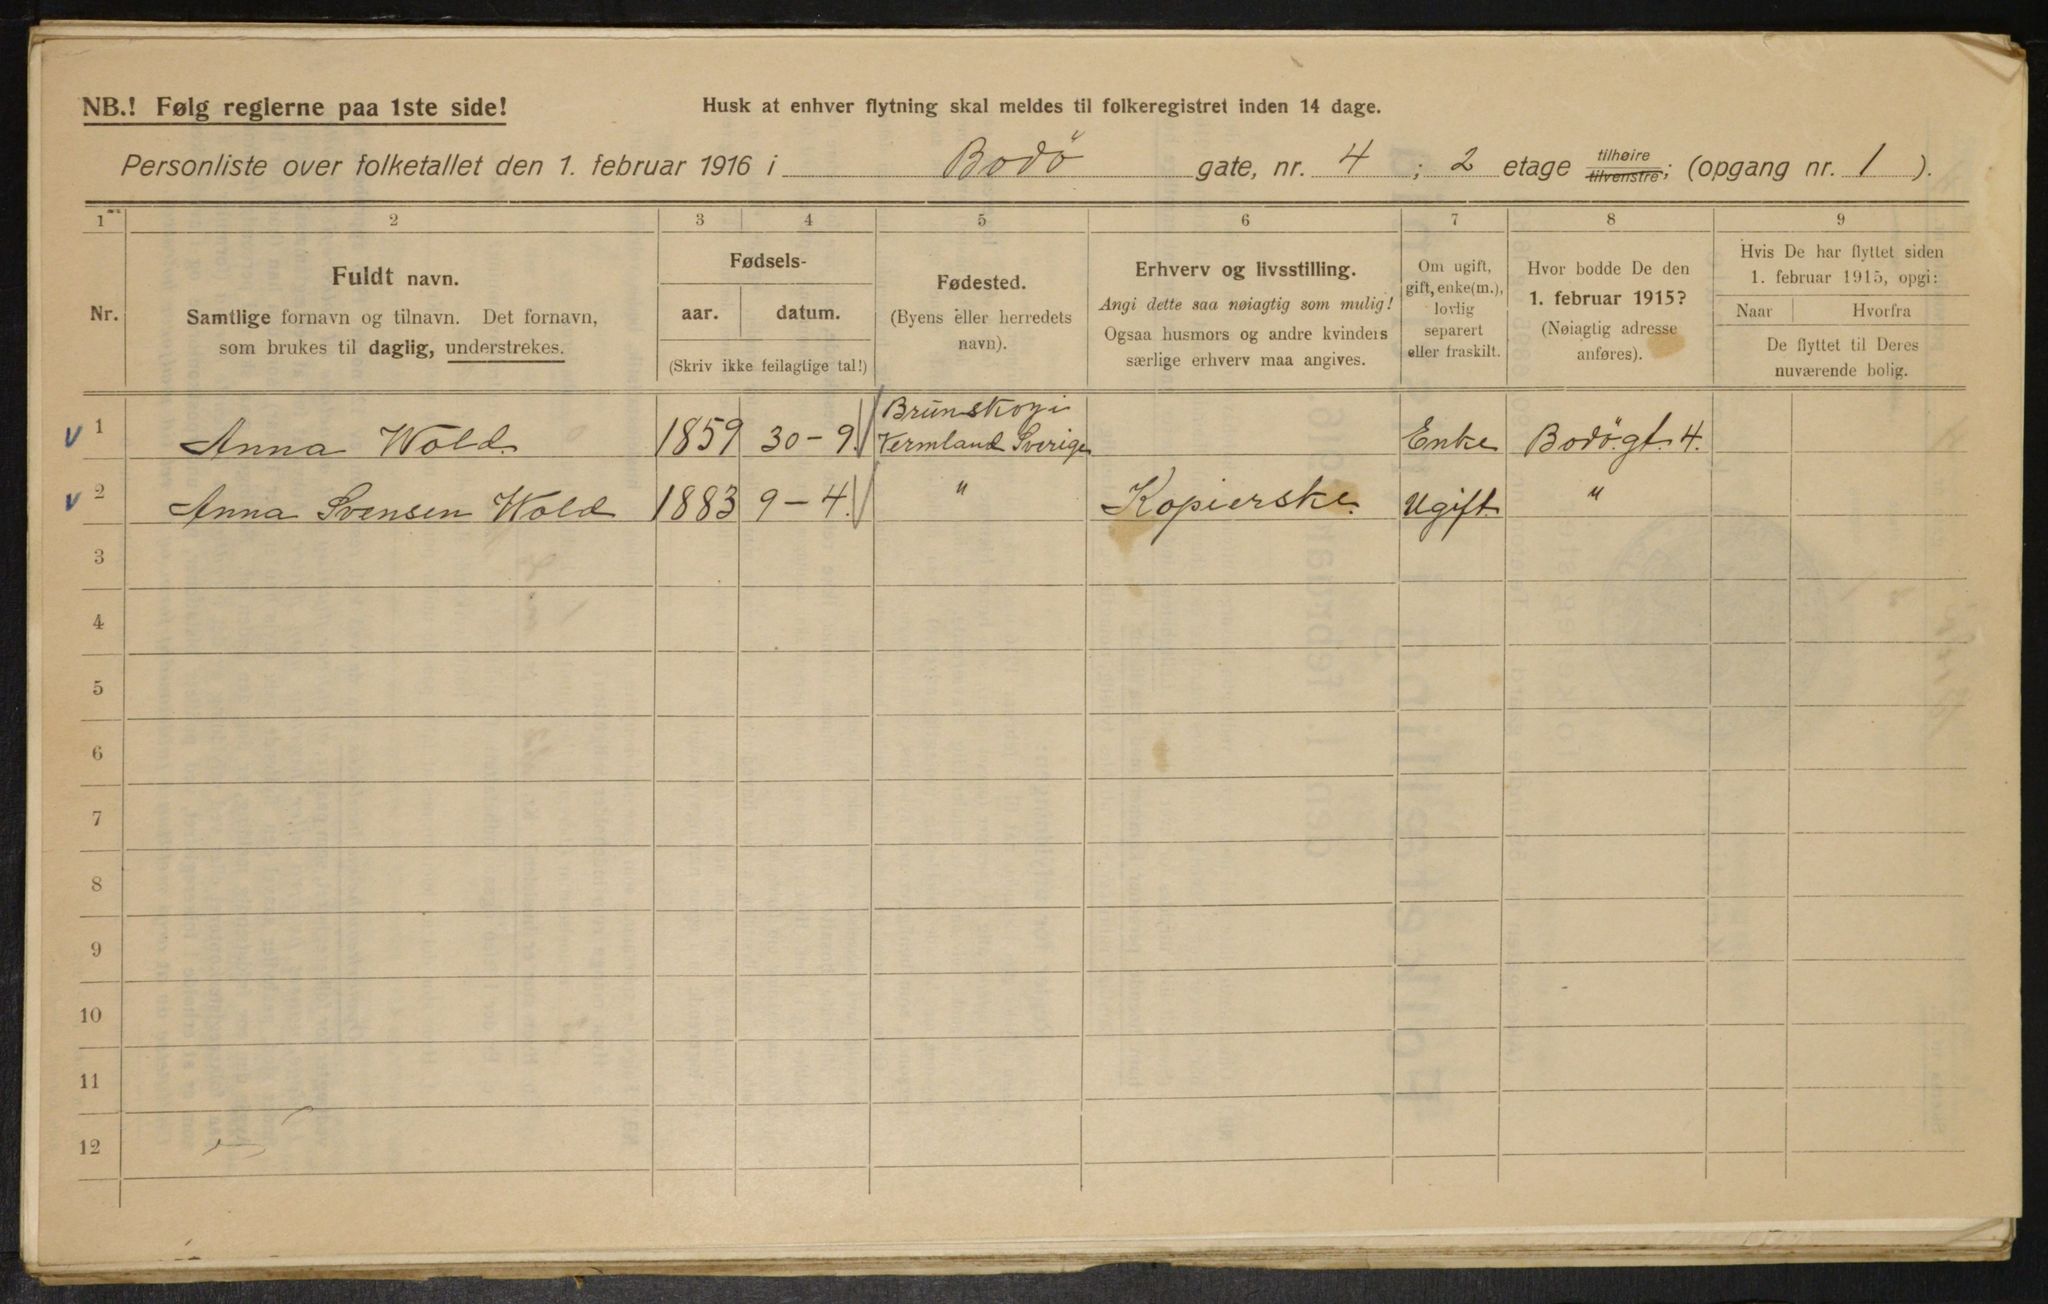 NB.! Følg reglerne paa 1ste side!
Husk at enhver flytning skal meldes til folkeregistret inden 14 dage.
Personliste over folketallet den 1. februar 1916 i Bodö gate, nr. 4 ; 2 etage tilhøire tilvenstre; (opgang nr. 1 ).
1 2 3 4 5 6 7 8 9
Nr.
Fuldt navn.
Samtlige fornavn og tilnavn. Det fornavn,
som brukes til daglig, understrekes.
Fødsels-
aar. datum.
(Skriv ikke feilagtige tal!)
Fødested.
(Byens eller herredets
navn).
Erhverv og livsstilling.
Angi dette saa nøiagtig som mulig!
Ogsaa husmors og andre kvinders
særlige erhverv maa angives.
Om ugift,
gift, enke(m.),
lovlig
separert
eller fraskilt.
Hvor bodde De den
1. februar 1915?
(Nøiagtig adresse
anføres).
Hvis De har flyttet siden
1. februar 1915, opgi:
Naar Hvorfra
De flyttet til Deres
nuværende bolig.
1 Anna Wold. 1859 30-9. Brunskog i Vermland Sverige Enke Bodö.gt. 4.
2 Anna Svensen Wold 1883 9-4. " Kopierske. Ugift "
3
4
5
6
7
8
9
10
11
12